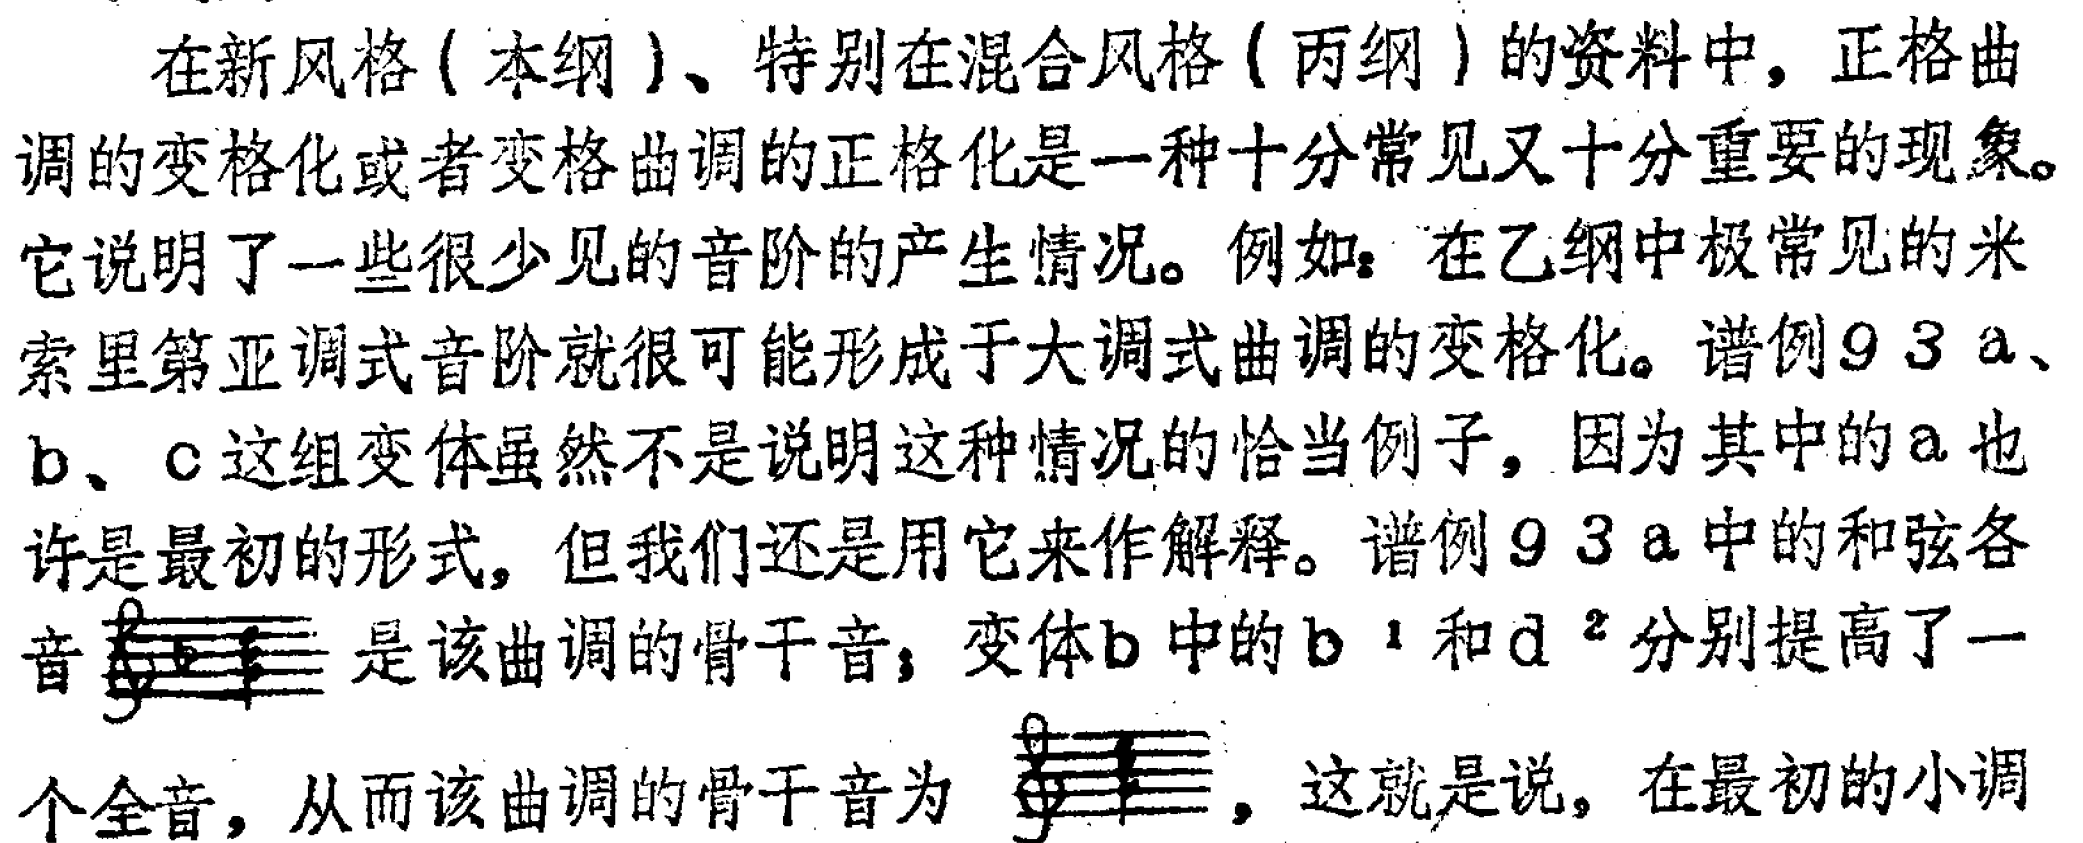 在新风格(本纲)、特别在混合风格(丙纲)的资料中，正格曲
调的变格化或者变格曲调的正格化是一种十分常见又十分重要的现象。
它说明了一些很少见的音阶的产生情况。例如：在乙纲中极常见的米
索里第亚调式音阶就很可能形成于大调式曲调的变格化。谱例93a、
b、c这组变体虽然不是说明这种情况的恰当例子，因为其中的a也
许是最初的形式，但我们还是用它来作解释。谱例93a中的和弦各
音 是该曲调的骨干音；变体b中的b¹和d²分别提高了一
个全音，从而该曲调的骨干音为 ，这就是说，在最初的小调